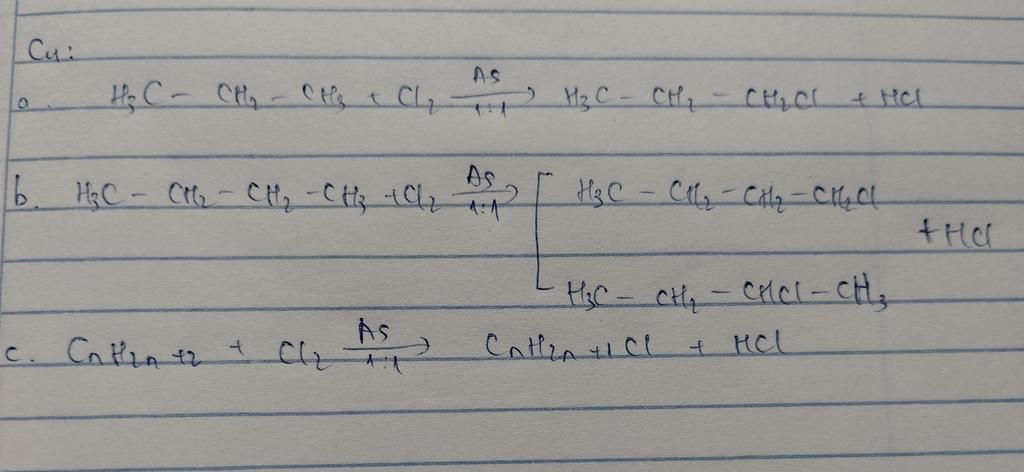 C4:
a. H3C - CH2 - CH3 + Cl2 AS 1:1 → H3C - CH2 - CH2Cl + HCl
b. H3C - CH2 - CH2 - CH3 + Cl2 AS 1:1 → [ H3C - CH2 - CH2 - CH2Cl
+ HCl
H3C - CH2 - CHCl - CH3
c. CnH2n+2 + Cl2 AS 1:1 → CnH2n+1Cl + HCl